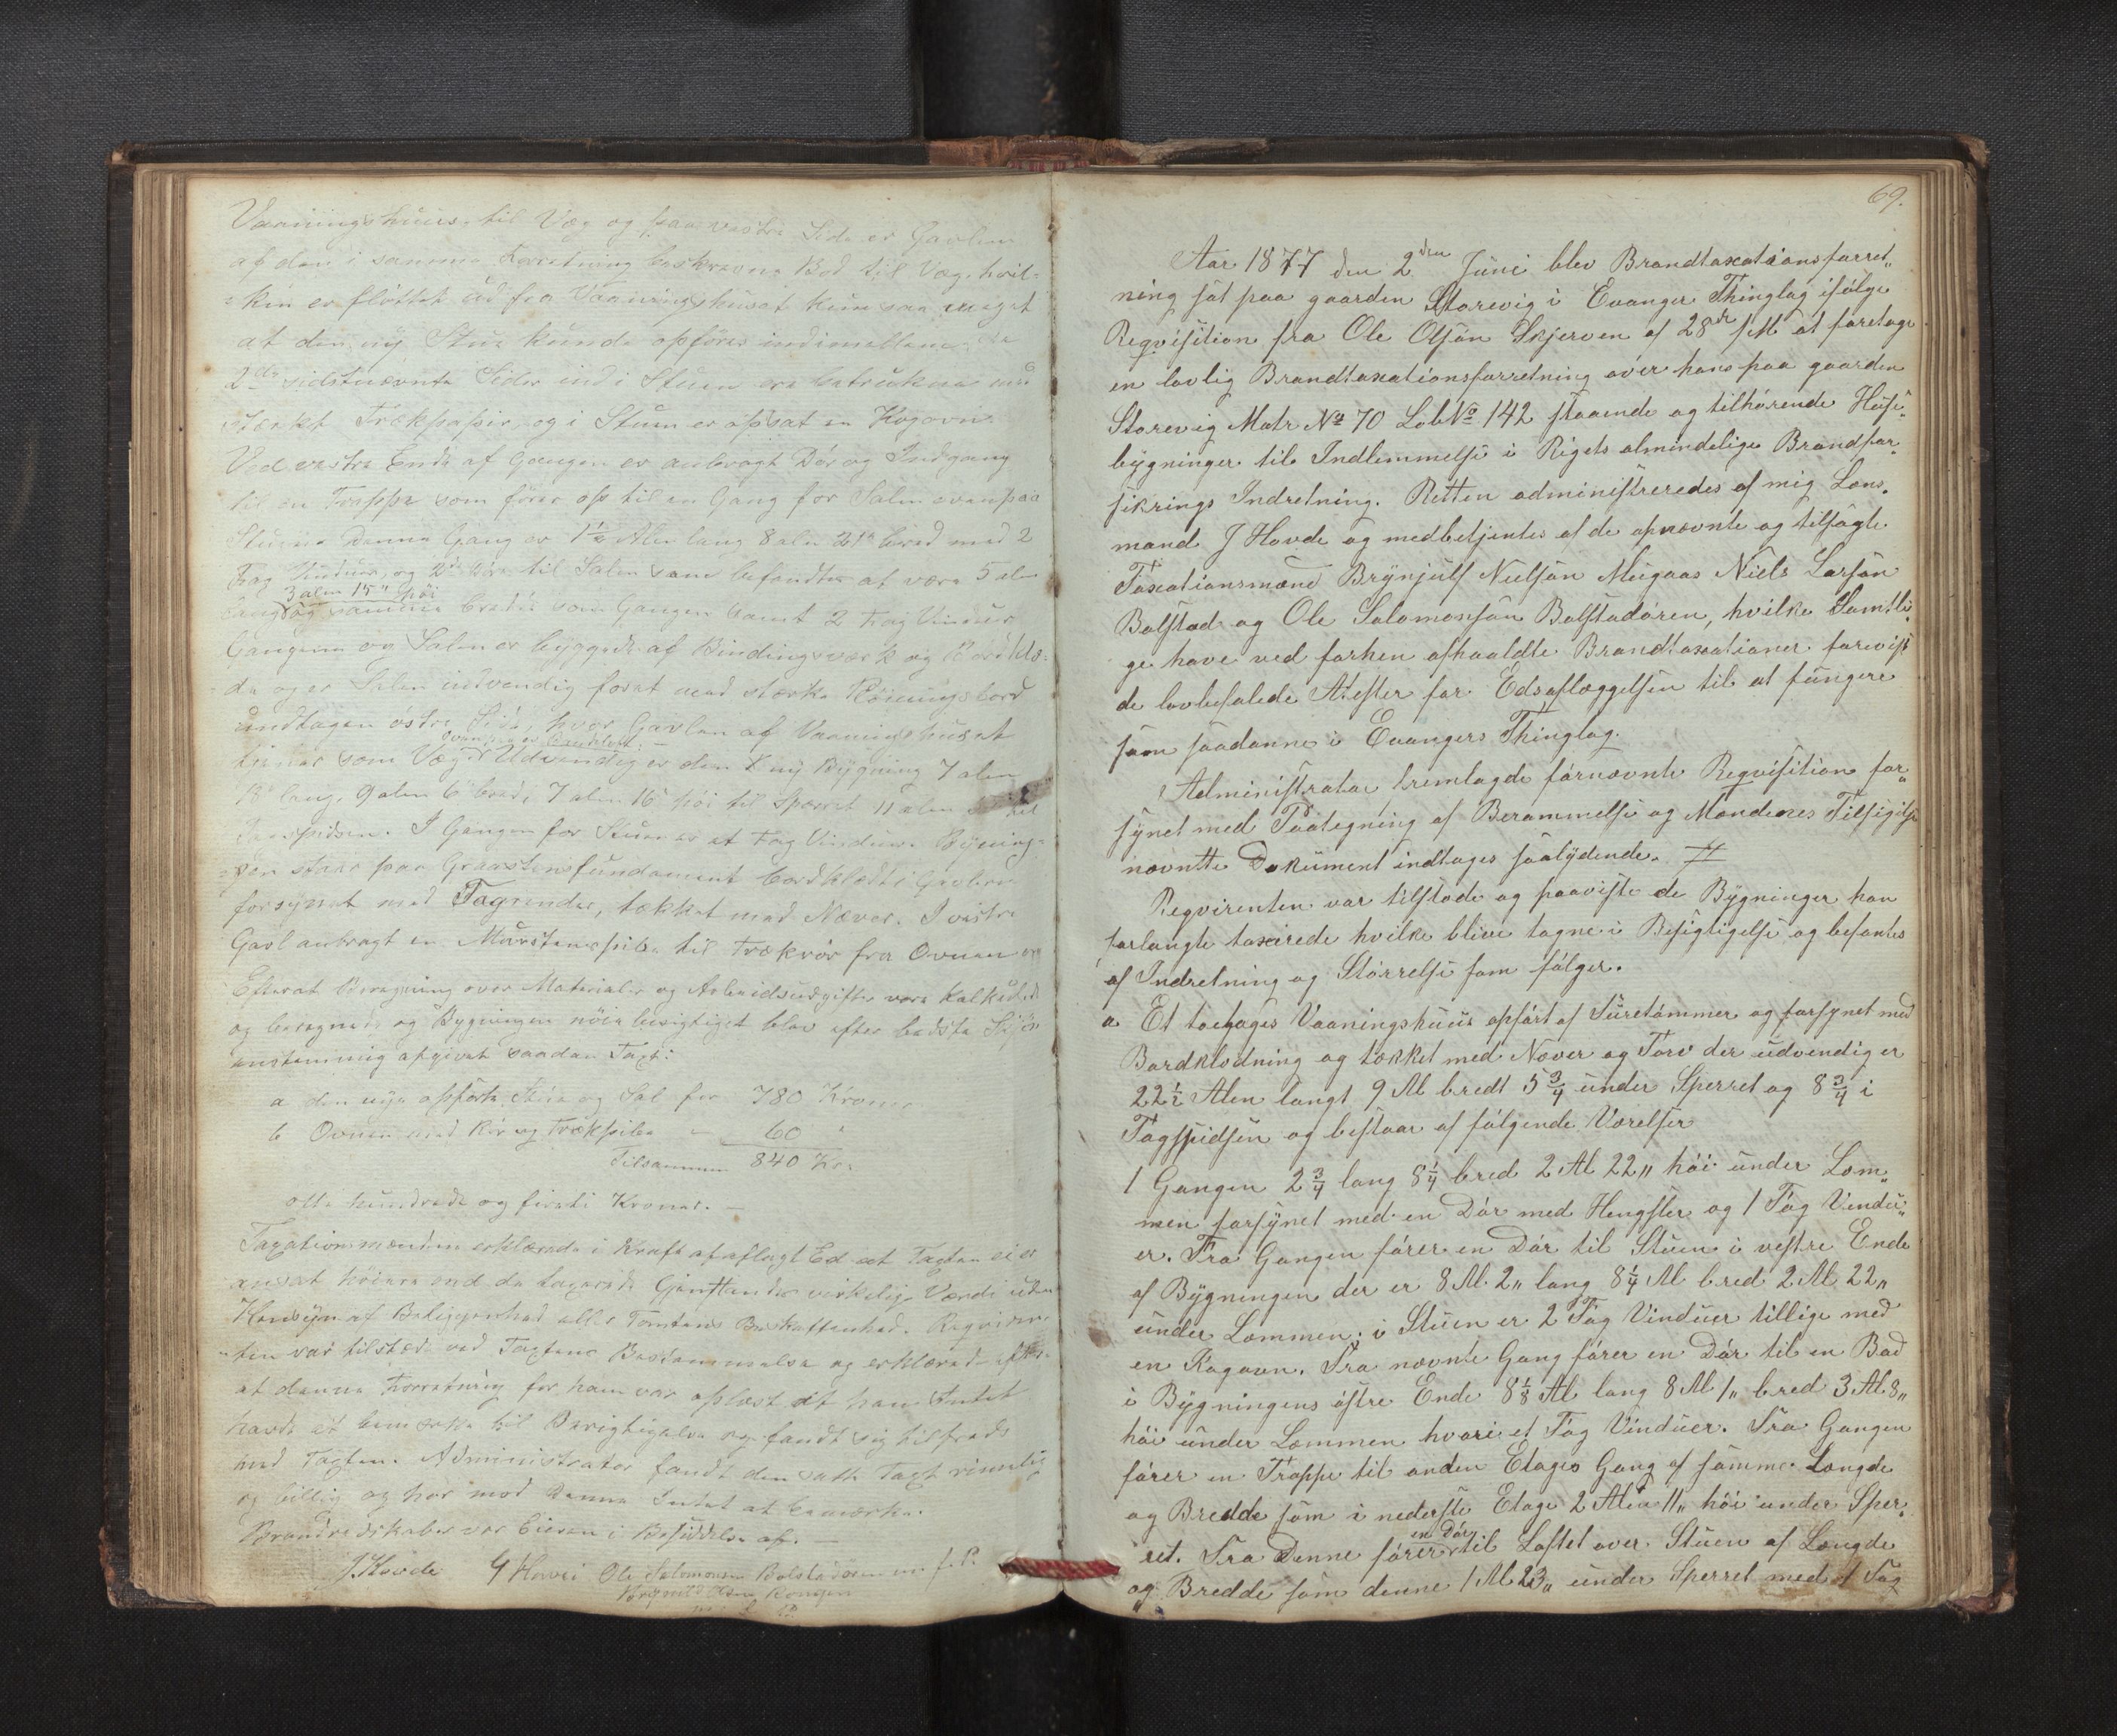 Vaaningshuus til Væg og paa vestre Side er Gavlen
af den i samme Forretning beskrevne Bod til Væg, hvil-
ken er flöttet ud fra Vaaningshuset kun saa meget
at den ny Stue kunde opföres indimellem de
2de sidstnævnte Sider ind i Stuen ere betrukne med
stærkt Trækpapir og i Stuen er opsat en Kogovn.
Ved vestre Ende af Gangen er anbragt Dör og Indgang
til en Trappe som förer op til en Gang for Salen ovenpaa
Stuen. Denne Gang er 1½ Alen lang 8 alen 21" bred med 2
Fag Vinduer, og 2de Döre til Salen som befandtes at være 5 alen
3 alen 15" höi
lang og samme bredde som Gangen samt 2 Fag Vinduer
Gangene og Salen er byggede af Bindingsværk og Bordklæ-
de og er Salen indvendig foret med stærke bord
undtagen östre Side, hvor Gavlen af Vaaningshuset
tjener som Væg. Udvendig er den ny Bygning 7 alen
18" lang, 9 alen 6" bred, 7 alen 16" höi til Sperret 11 alen til
Tagspidsen. I Gangen for Stuen er et Fag Vinduer. Bygning-
en staar paa Graastensfundament bordklædt i Gavlen
forsynet med Tagrender, tækket med Næver. I vestre
Gavl anbragt en Murstenspibe til Trækrör fra Ovnen
Efterat Beregning over Materialer og Arbeidsudgifter vare kalkulerede
og beregnede og Bygningen nöie besigtiget blev efter bedste Skjön
enstemmig afgivet saadan Taxt:
a den nye opförte Stue og Sal for 780 Kroner
b Ovnen med Rör og Trækpibe - 60 "
Tilsammen 840 Kr.
otte hundrede og firti Kroner. —
Taxationsmændene erklærede i Kraft af aflagt Ed at Taxten ei er
ansat höiere end de taxerede Gjenstandes virkelige Værdi uden
Hensyn af Beliggenhed eller Tomtens Beskaffenhed. Reqviren-
ten var tilstede ved Taxtens Bestemmelse og erklærede efter-
at denne Forretning for ham var oplæst at han Intet
havde at bemærke til Berigtigelse og fandt sig tilfreds
med Taxten. Administrator fandt den satte Taxt rimelig
og billig og har mod denne Intet at bemærke.
Brandredskaber var Eieren i Besiddelse af. —
J. Hovde Ole Salomonsen Bolstadören m. f. P.

69.
Aar 1877 den 2den Juni blev Brandtaxationsforret„
ning sat paa gaarden Storevig i Evanger Thinglag ifölge
Reqvisition fra Ole Olsön Skjerven af 28de f. M. at foretage
en lovlig Brandtaxationsforretning over hans paa gaarden
Storevig Matr No 70 Löb No 142 staaende og tilhörende Huse„
bygninger til Indlemmelse i Rigets almindelige Brandfor„
sikrings Indretning. Retten administreredes af mig Lens„
mand J Hovde og medbetjentes af de opnævnte og tilsagte
Taxationsmænd Brynjulf Nielsön Mugaas Niels Larsön
Bolstad og Ole Salomonsön Bolstadören, hvilke Samtli„
ge have ved forhen afholdte Brandtaxationer forevist
de lovbefalede Atester for Edsaflæggelsen til at fungere
som saadanne i Evangers Thinglag.
Administrator fremlagde förnævnte Reqvisition for„
synet med Paategning af Berammelse og Mændenes Tilsigelse
nævntte Dokument indtages saalydende. #
Reqvirenten var tilstede og paaviste de Bygninger han
forlangte taxerede hvilke blive tagne i Besigtigelse og befantes
af Indretning og Störrelse som fölger.
a Et toetages Vaaningshuus opfört af Furetömmer og forsynet med
Bordklædning og tækket med Næver og Torv der udvendig er
22½ Alen langt 9 Al bredt 5¾ under Sperret og 8¾ i
Tagspidsen og bestaar af fölgende Værelser
1 Gangen 2¾ lang 8¼ bred 2 Al 22„ höi under Læm„
men forsynet med en Dör med Hengsler og 1 Fag Vindu„
er. Fra Gangen förer en Dör til Stuen i vestre Ende
af Bygningen der er 8 Al. 2„ lang 8¼ Al bred 2 Al 22„
under Læmmen; i Stuen er 2 Fag Vinduer tillige med
en Kogovn. Fra nævnte Gang förer en Dör til en Bod
i Bygningens östre Ende 8⅛ Al lang 8 Al 1„ bred 3 Al 8„
höi under Læmmen hvori et Fag Vinduer. Fra Gangen
förer en Trappe til anden Etages Gang af samme Længde
og Bredde som i nederste Etage 2 Alen 11„ höi under Sper„
en Dör
ret. Fra Denne förer til Loftet over Stuen af Længde
og Bredde som denne 1 Al 23„ under Sperret med 1 Fag